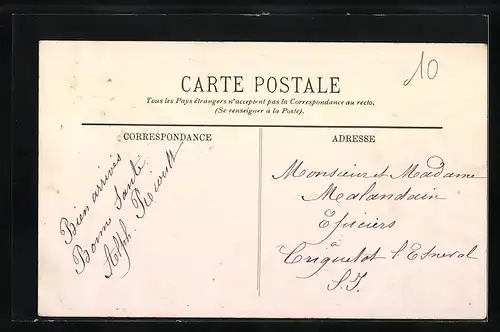 10
CARTE POSTALE
Tous les Pays étrangers n'acceptent pas la Correspondance au recto.
(Se renseigner à la Poste).
CORRESPONDANCE
Bien arrivés
Bonne Santé
Alph.
ADRESSE
Monsieur et Madame
Malandain
Epiciers
à
Criquetot l'Esneval
S. I.